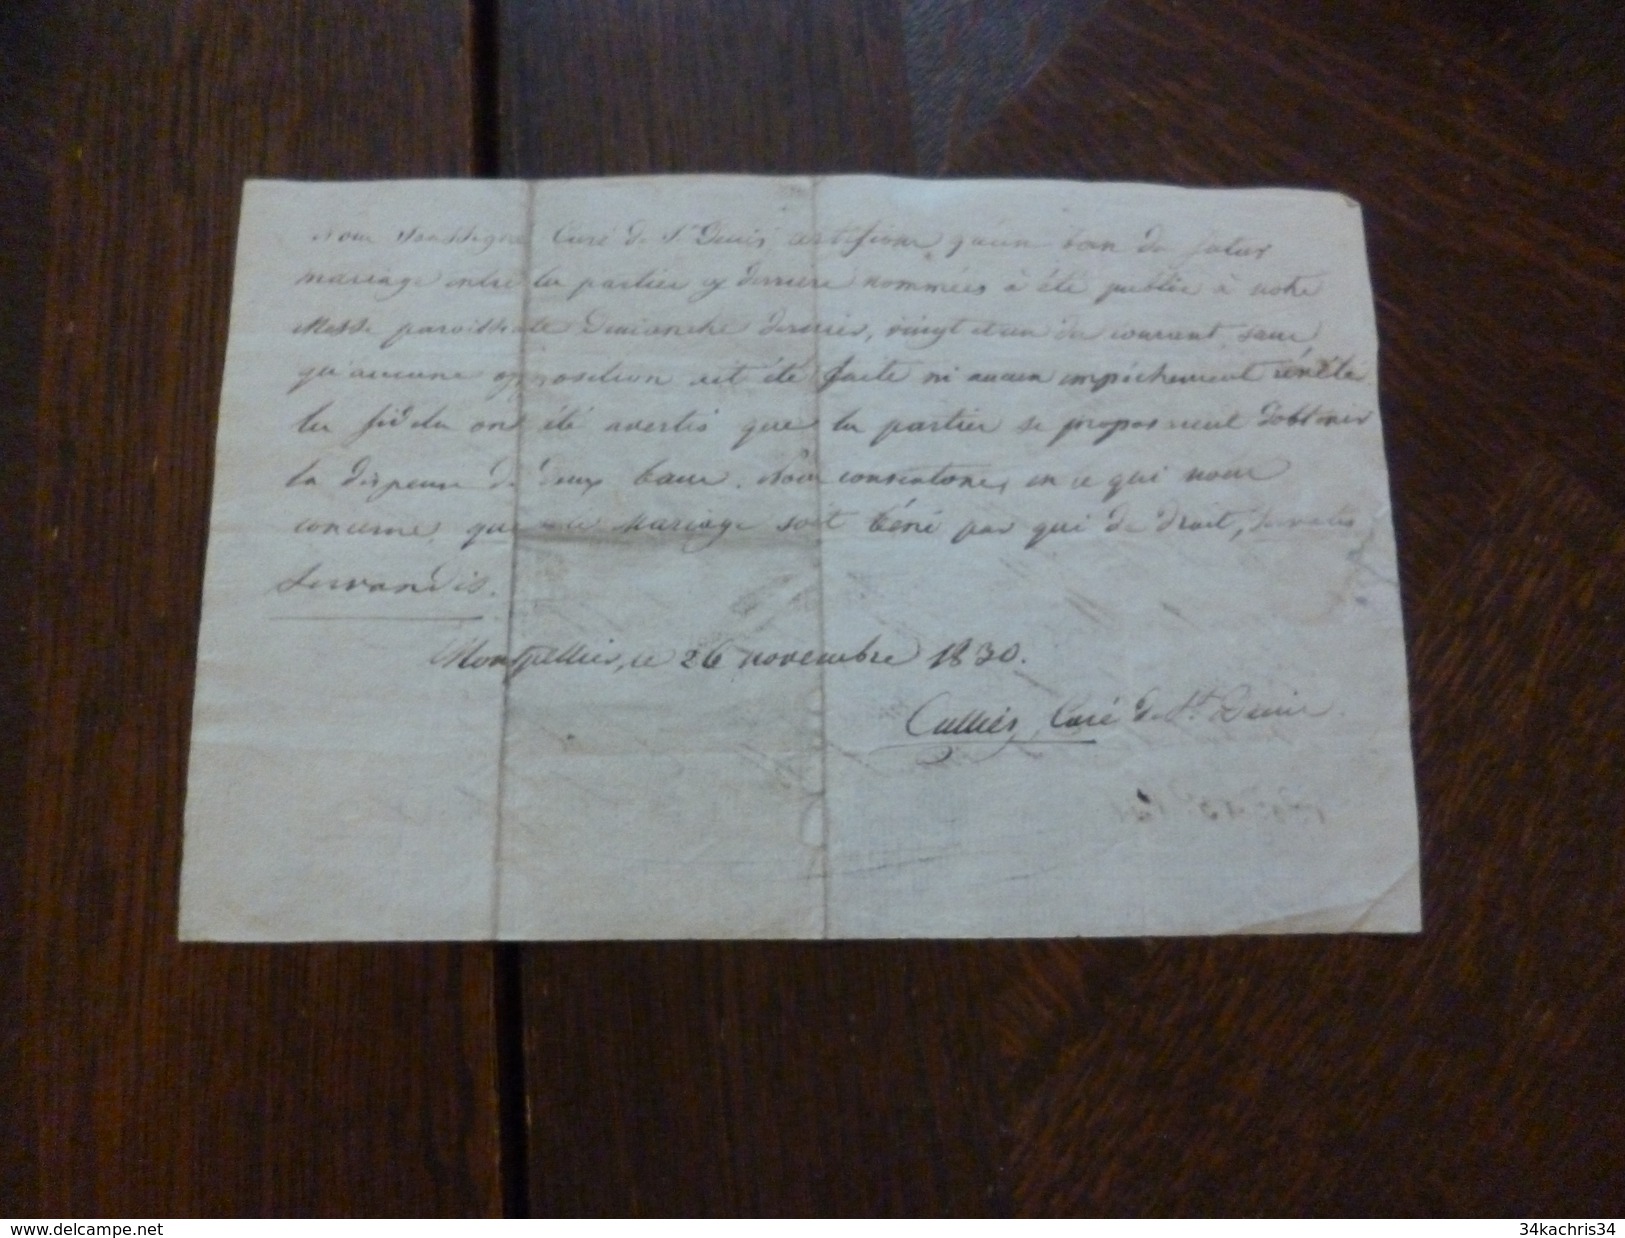 Nous Soussigné Curé de St Denis, certifions qu'un ban du futur
mariage entre les parties cy derrière nommées à été publié à notre
Messe paroissiale Dimanche dernier, vingt et un du courant, sans
qu'aucune opposition ait été faite ni aucun empéchement révélé
les fidèles ont été avertis que les parties se proposaient d'obtenir
la dispense de deux bans. Nous consentons, en ce qui nous
concerne, que le Mariage soit béni par qui de droit, servatis
servandis.
Montpellier, le 26 novembre 1830.
Curé de St Denis
www.delcampe.net
34kachris34